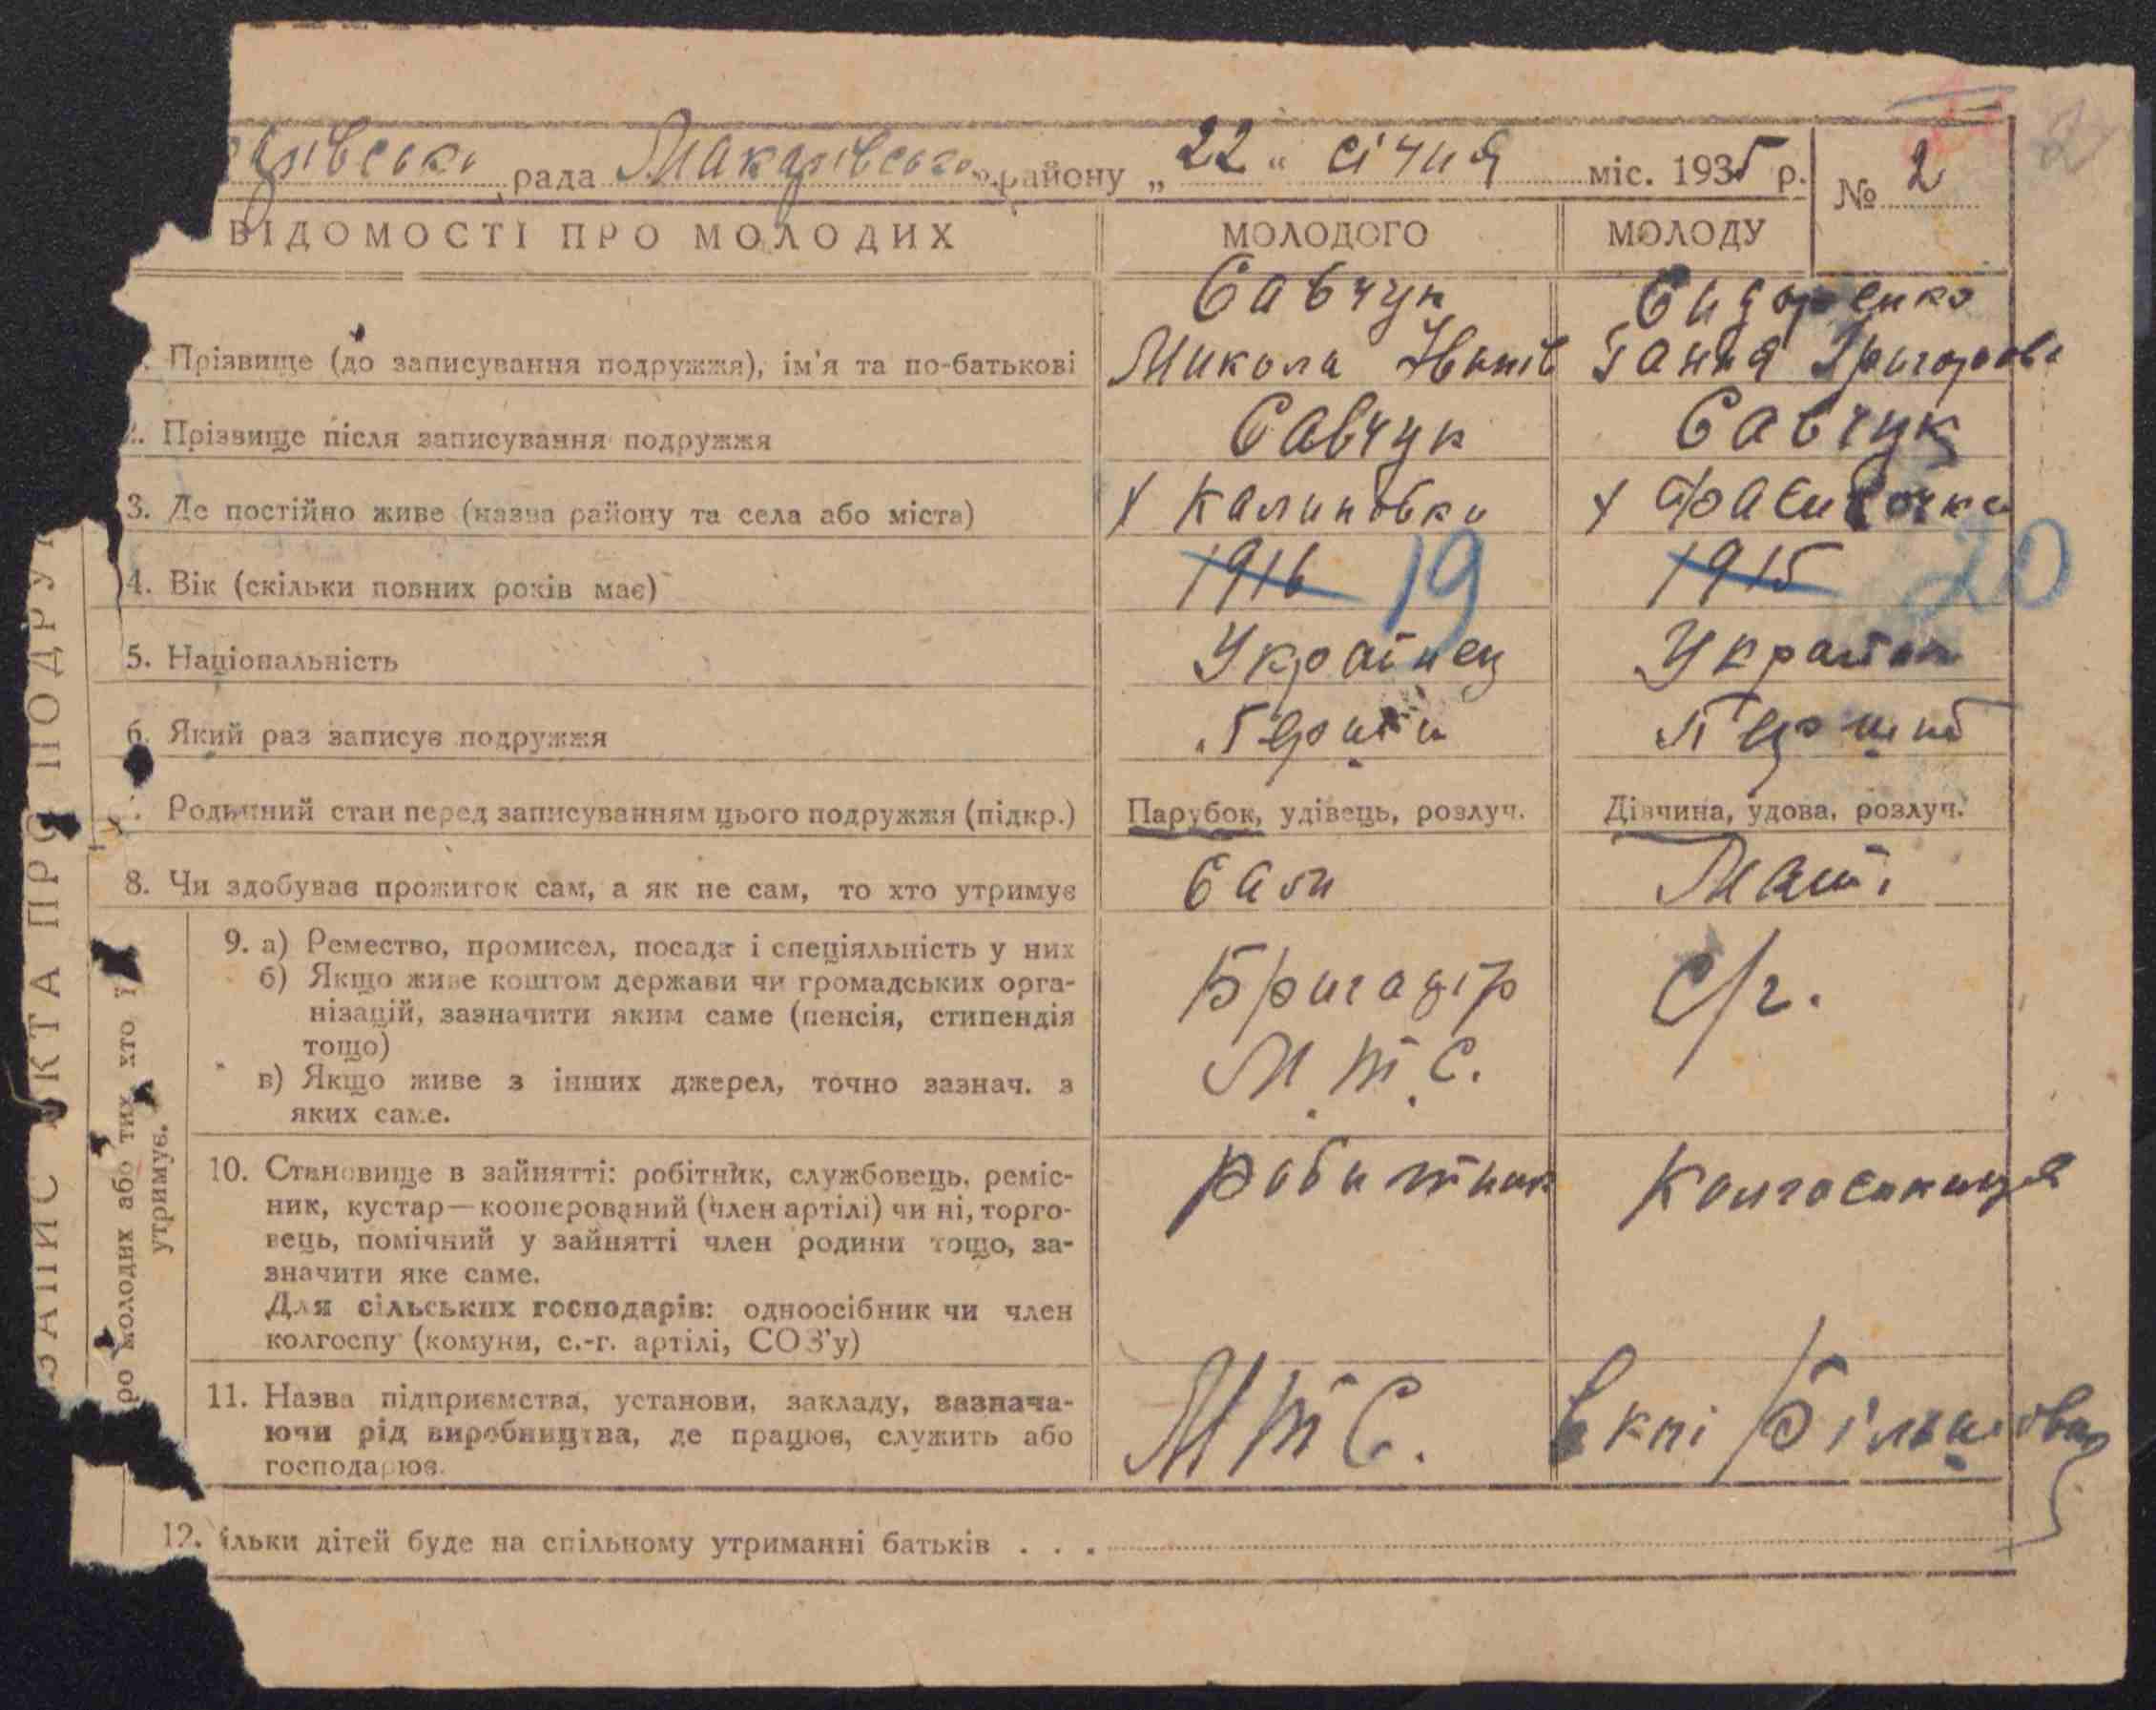 рада Макарівсько району „22“ січня міс. 1935 р. № 2
ВІДОМОСТІ ПРО МОЛОДИХ МОЛОДОГО МОЛОДУ
Савчук Сидоренко
Прізвище (до записування подружжя), ім'я та по-батькові Микола Іванів Ганна Григоров
2. Прізвище після записування подружжя Савчук Савчук
3. Де постійно живе (назва району та села або міста) х Калиновка х
4. Вік (скільки повних років має) 1916 19 1915 20
5. Національність Українец Українк
6. Який раз записує подружжя Перший Перший
Родинний стан перед записуванням цього подружжя (підкр.) Парубок, удівець, розлуч. Дівчина, удова, розлуч.
8. Чи здобував прожиток сам, а як не сам, то хто утримує Сам Маті
9. а) Ремество, промисел, посада і спеціяльність у них
б) Якщо живе коштом держави чи громадських орга-
нізацій, зазначити яким саме (пенсія, стипендія
тощо)
в) Якщо живе з інших джерел, точно зазнач. з
яких саме.
Бригадір
М.Т.С.
С/г.
10. Становище в зайнятті: робітник, службовець, реміс-
ник, кустар—кооперований (член артілі) чи ні, торго-
вець, помічний у зайнятті член родини тощо, за-
значити яке саме.
Для сільських господарів: одноосібник чи член
колгоспу (комуни, с.-г. артілі, СОЗ'у)
робитник Колгоспниця
11. Назва підприємства, установи, закладу, зазнача-
ючи рід виробництва, де працює, служить або
господарює.
МТС.
12. ільки дітей буде на спільному утриманні батьків . . .
ЗАПИС АКТА ПРО ПОДРУ
ро молодих або тих хто ї
утримує.